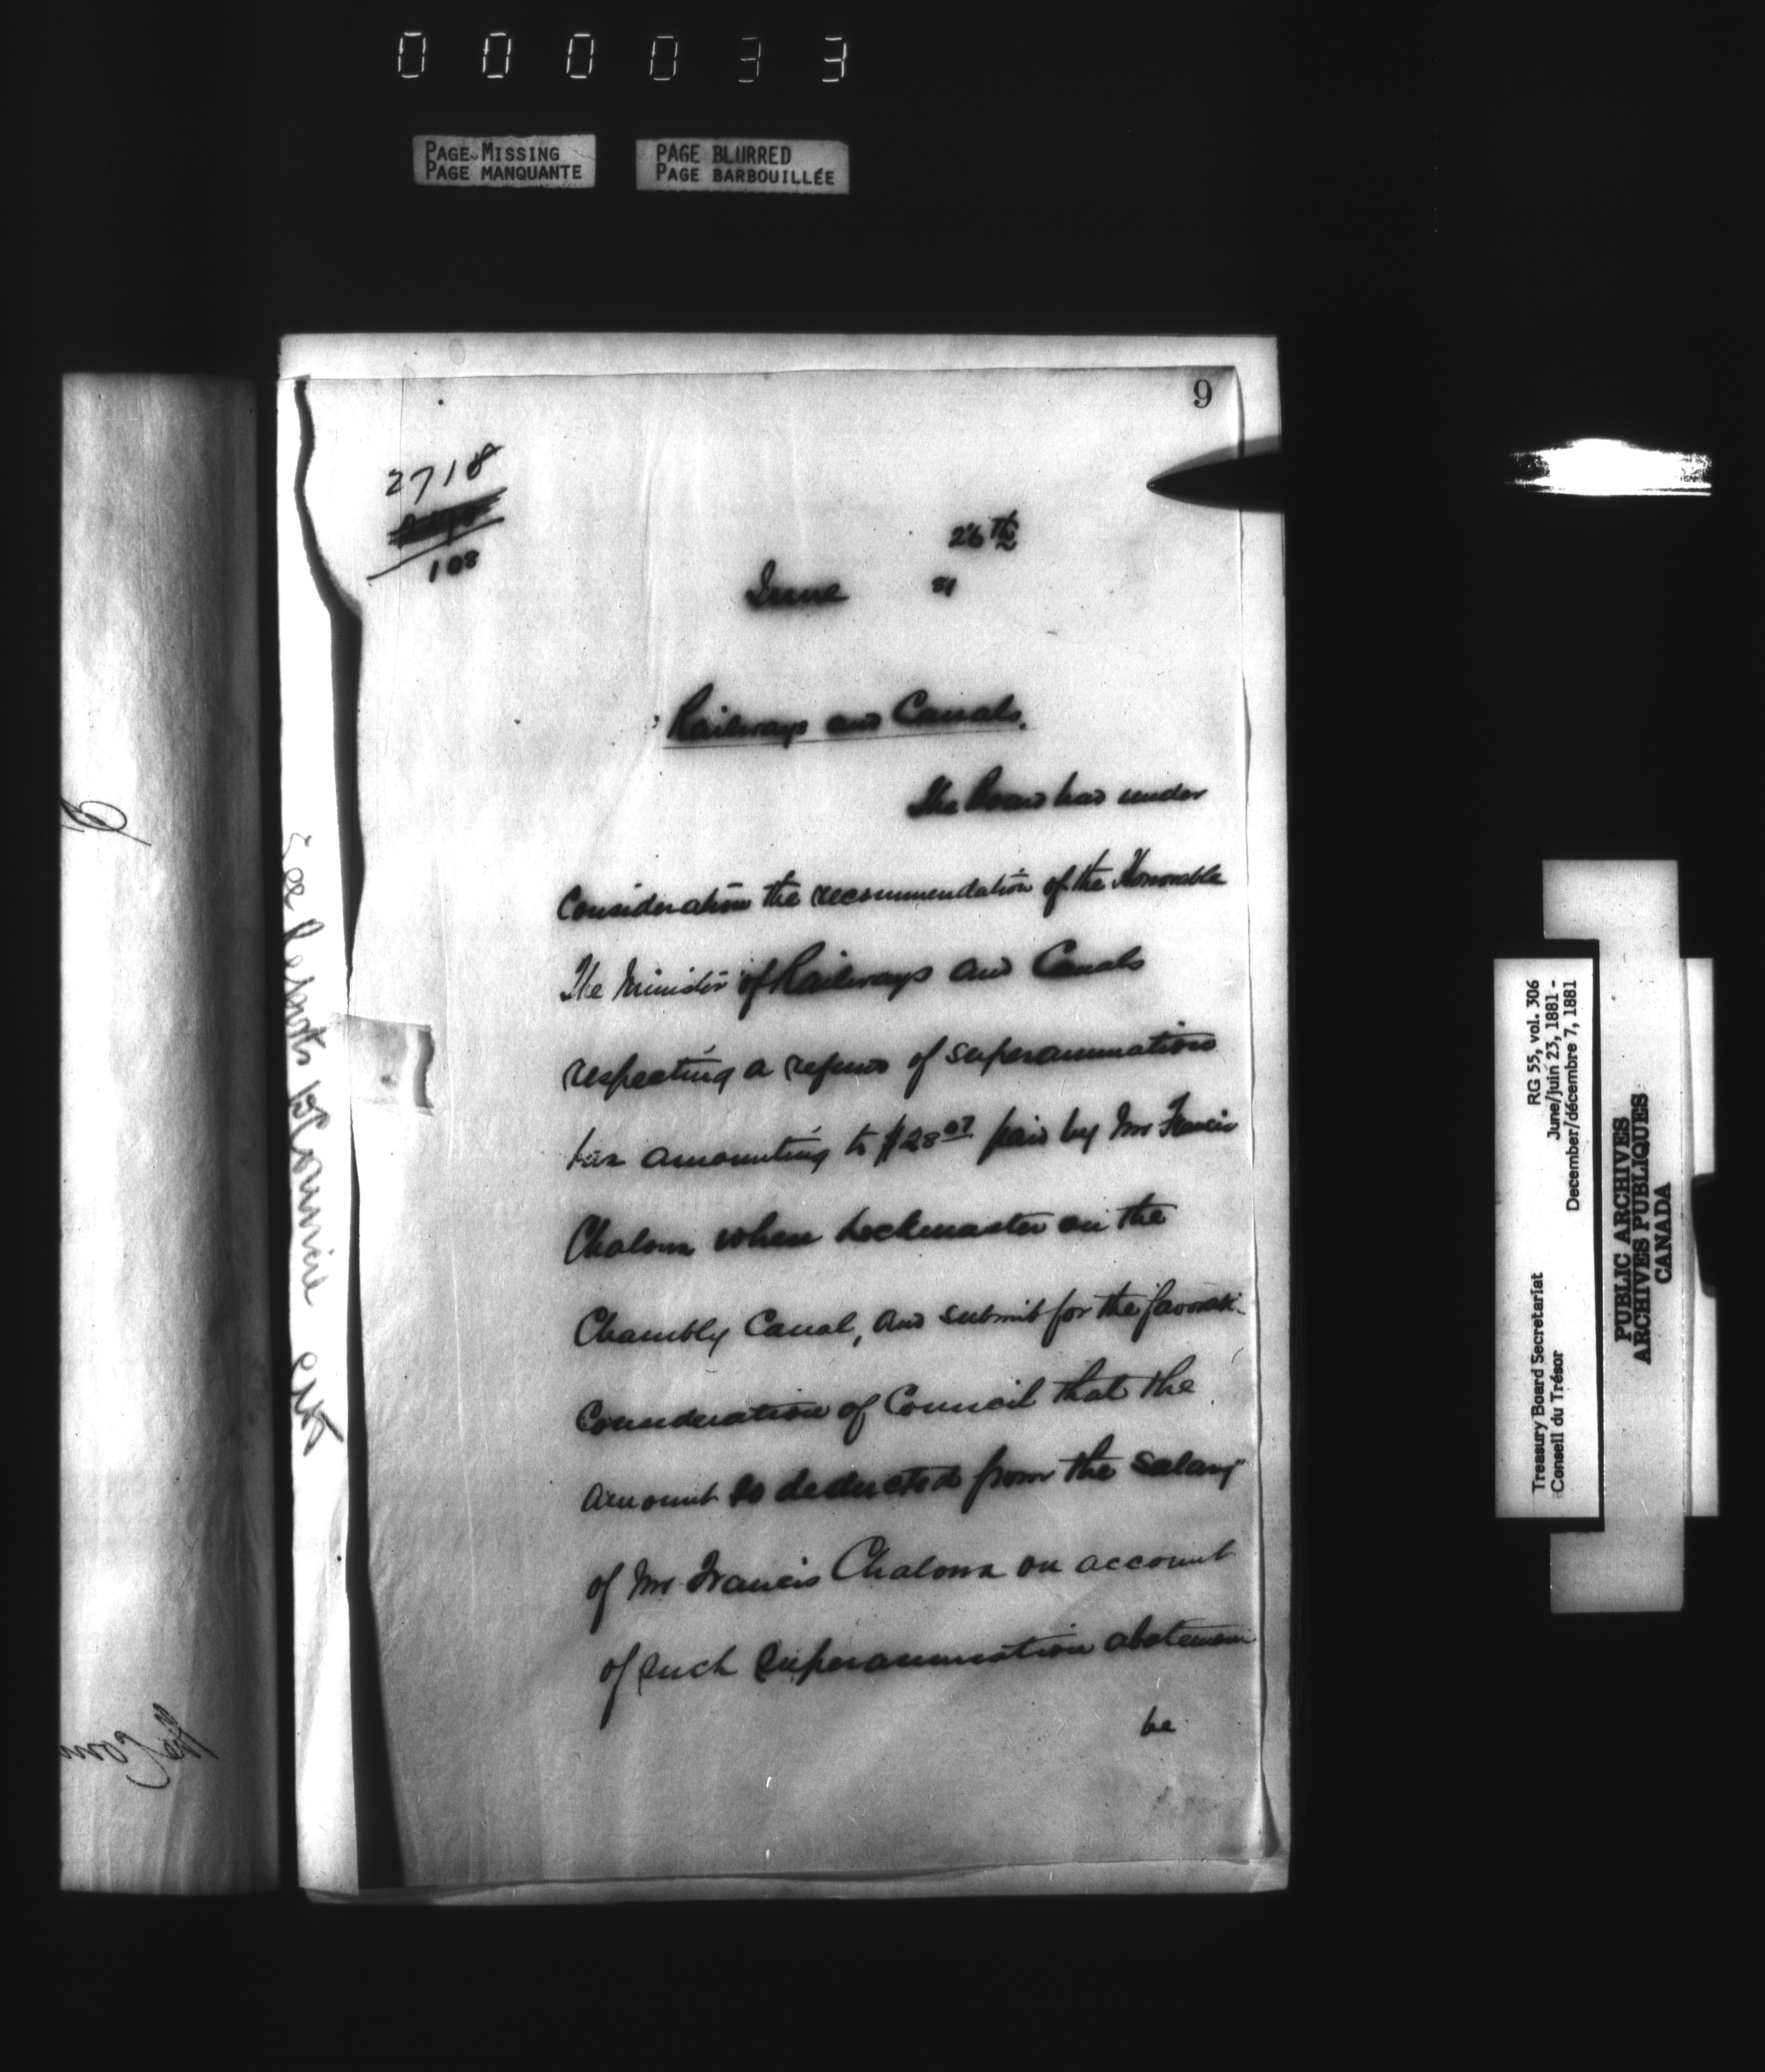 000033
PAGE MISSING
PAGE MANQUANTE
PAGE BLURRED
PAGE BARBOUILLÉE
9
2718
108
26th
June 81
Railways and Canals.
The Board had under
Consideration the recommendation of the Honorable
The Minister of Railways and Canals
respecting a refund of superannuation
tax amounting to $28 07 paid by Mr Francis
Chalom when Lockmaster on the
Chambly Canal, and submit for the favorable
Consideration of Council that the
amount so deducted from the salary
of Mr Francis Chalom on account
of such superannuation abatement
be
Treasury Board Secretariat
Conseil du Trésor
RG 55, vol. 306
June/juin 23, 1881 -
December/décembre 7, 1881
PUBLIC ARCHIVES
ARCHIVES PUBLIQUES
CANADA